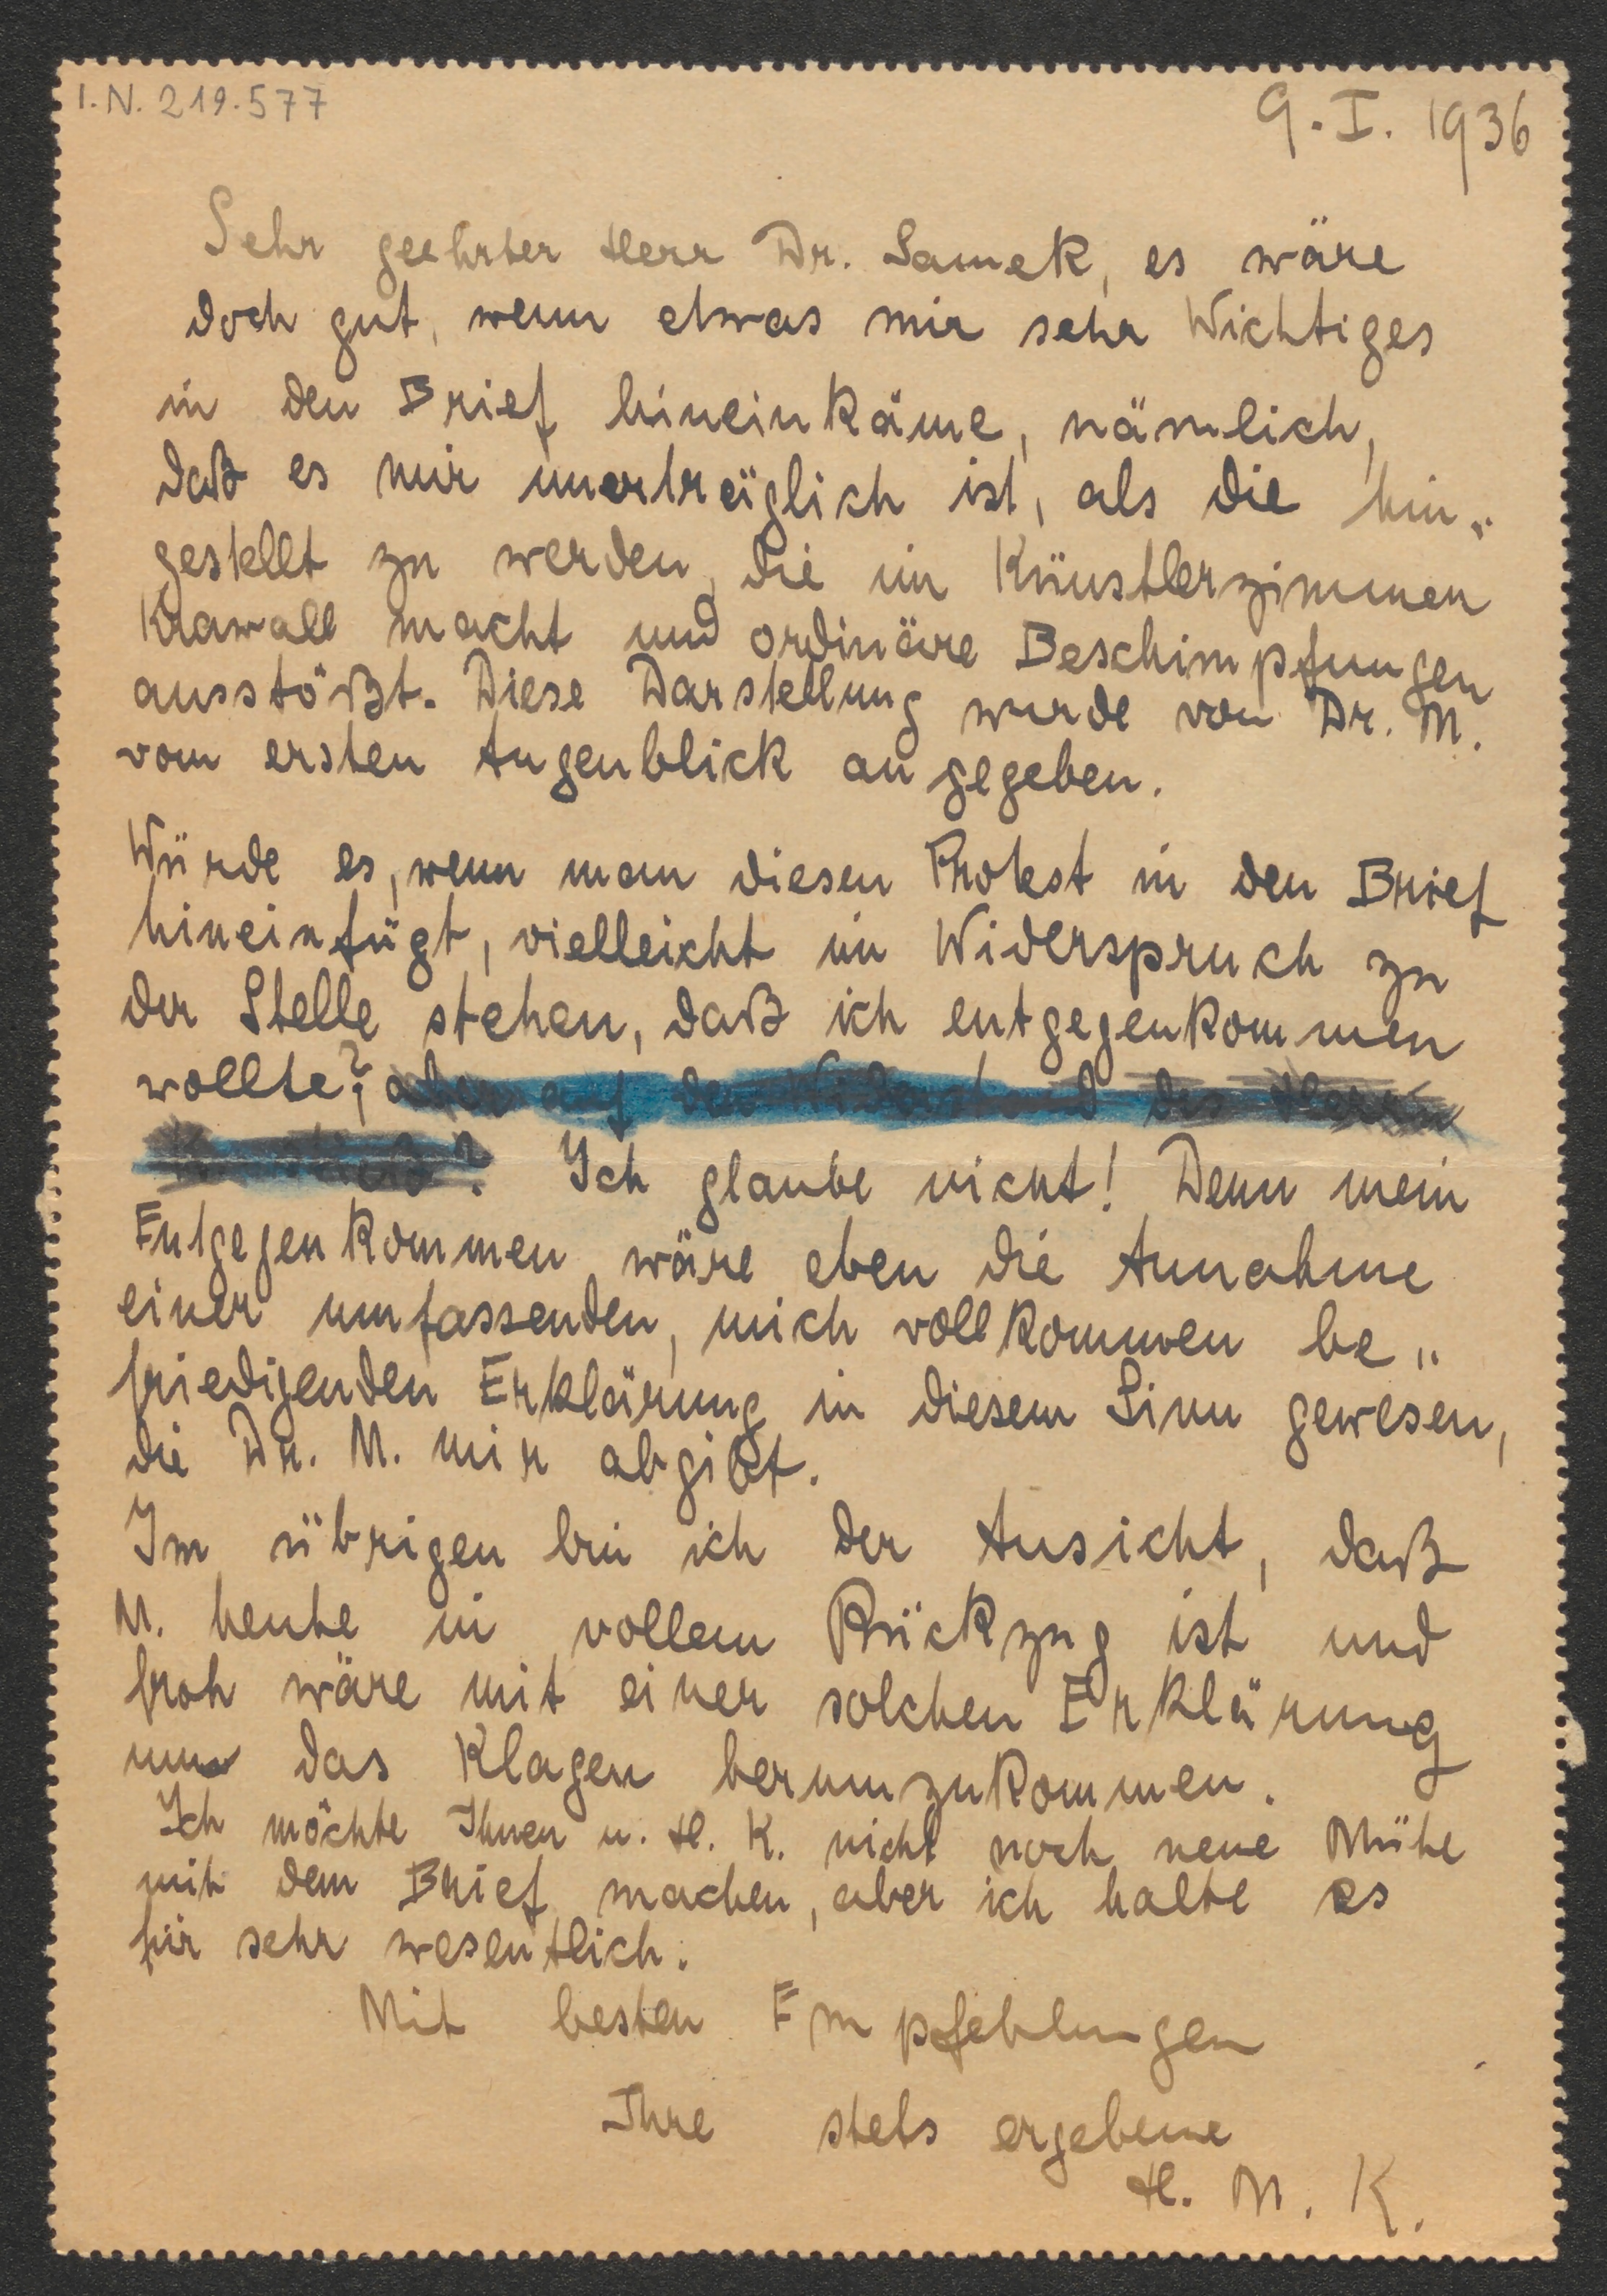 I.N. 219.577
9. I. 1936
Sehr geehrter Herr Dr. Samek, es wäre
doch gut, wenn etwas mir sehr Wichtiges
in den Brief hineinkäme, nämlich,
daß es mir unerträglich ist, als die hin„
gestellt zu werden, die im Künstlerzimmer
Krawall macht und ordinäre Beschimpfungen
ausstößt. Diese Darstellung wurde von Dr. M.
vom ersten Augenblick an gegeben.
Würde es, wenn man diesen Protest in den Brief
hineinfügt, vielleicht im Widerspruch zu
der Stelle stehen, daß ich entgegenkommen
wollte?, aber auf den Widerstand des Herrn
Ich glaube nicht! Denn mein
Entgegenkommen wäre eben die Annahme
einer umfassenden, mich vollkommen be„
friedigenden Erklärung in diesem Sinn gewesen,
die Dr. M. mir abgibt.
Im übrigen bin ich der Ansicht, daß
M. heute in vollem Rückzug ist und
froh wäre mit einer solchen Erklärung
um das Klagen herumzukommen.
Ich möchte Ihnen u. H. K. nicht noch neue Mühe
mit dem Brief machen, aber ich halte es
für sehr wesentlich.
Mit besten Empfehlungen
Ihre stets ergebene
H. M. K.